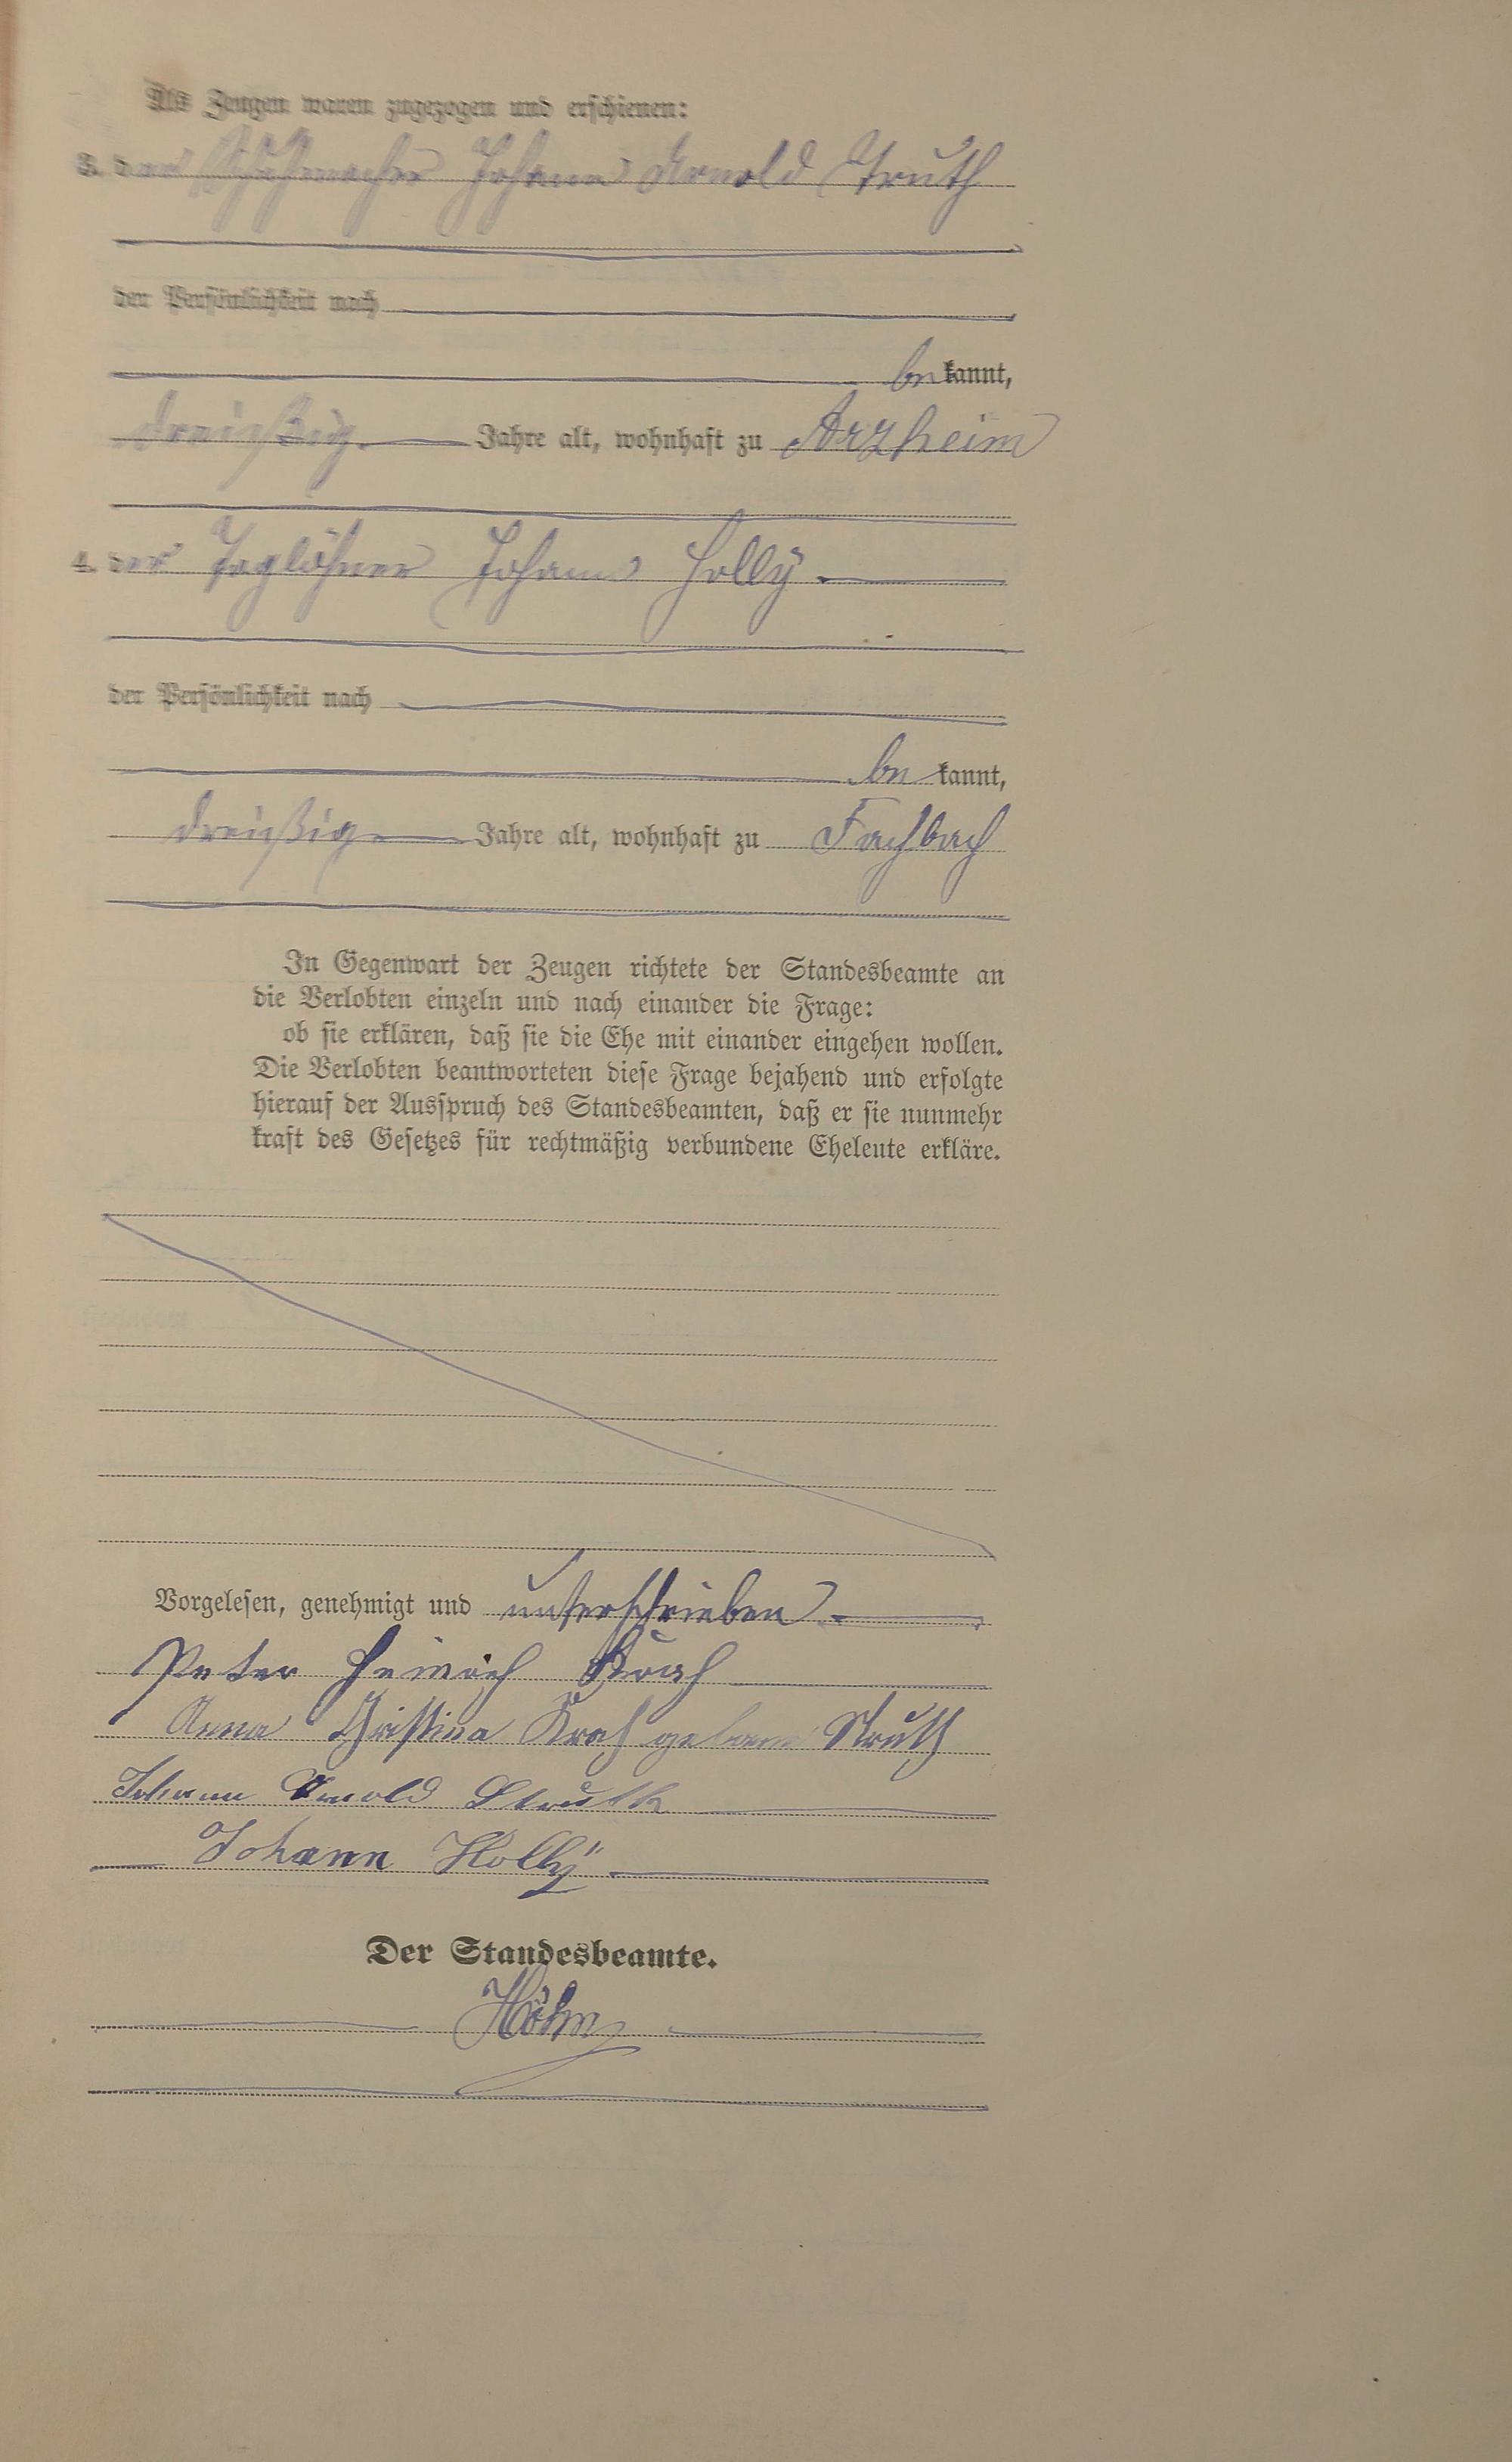 Als Zeugen waren zugezogen und erschienen:
3. der Schuhmacher Johann Arnold Struth
der Persönlichkeit nach
be kannt,
dreißig Jahre alt, wohnhaft zu Arzheim
4. der Taglöhner Johann Holly
der Persönlichkeit nach
be kannt,
dreißig Jahre alt, wohnhaft zu Fachbach
In Gegenwart der Zeugen richtete der Standesbeamte an
die Verlobten einzeln und nach einander die Frage:
ob sie erklären, daß sie die Ehe mit einander eingehen wollen.
Die Verlobten beantworteten diese Frage bejahend und erfolgte
hierauf der Ausspruch des Standesbeamten, daß er sie nunmehr
kraft des Gesetzes für rechtmäßig verbundene Eheleute erkläre.
Vorgelesen, genehmigt und unterschrieben
Peter Heinrich Krah
Anna Christina Krah geborne Struth
Johann Arnold Struth
Johann Holly
Der Standesbeamte.
Höhn